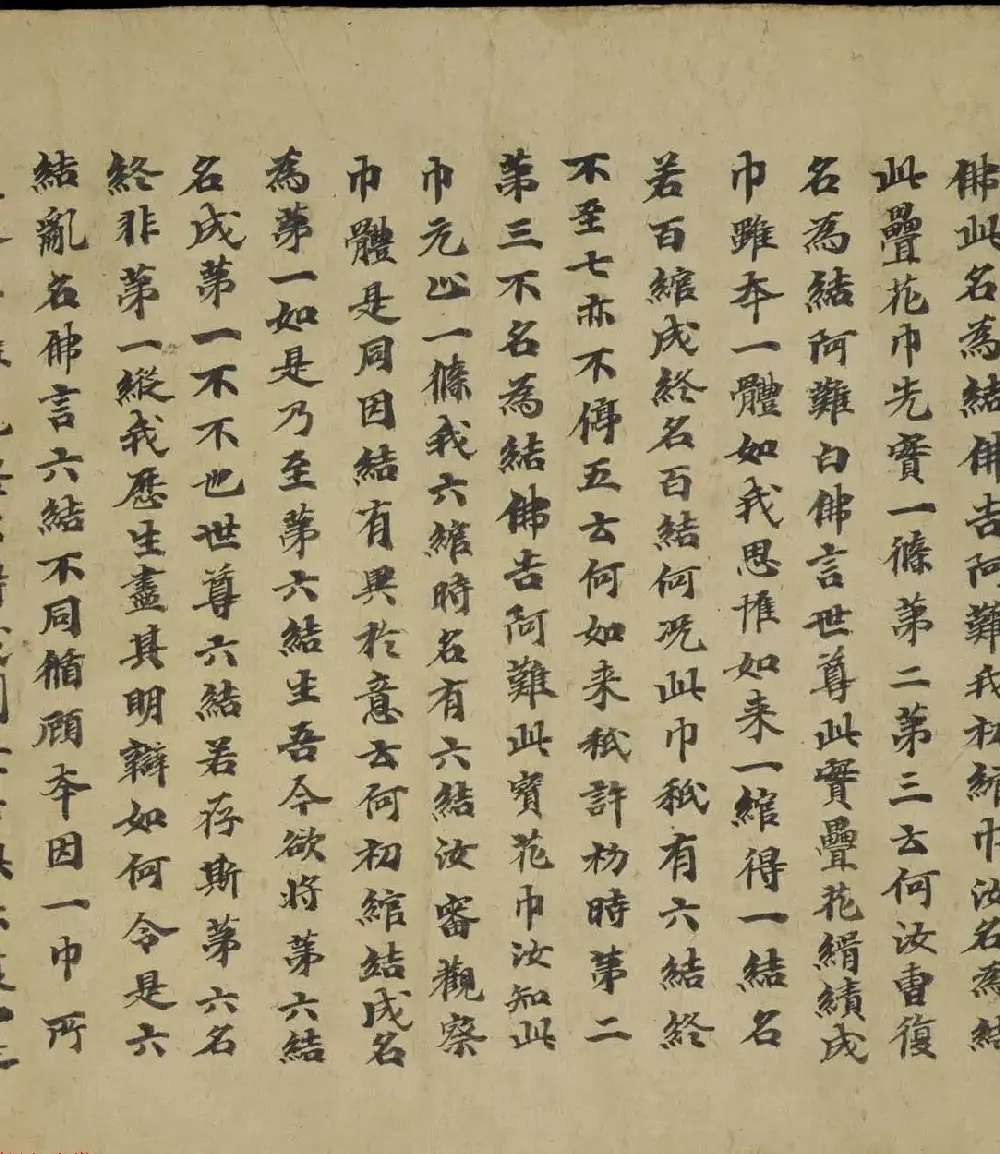 佛此名為結佛告阿難我初綰巾汝名為結
此疊花巾先實一條第二第三云何汝曹復
名為結阿難白佛言世尊此寶疊花緝績成
巾雖本一體如我思惟如来一綰得一結名
若百綰成終名百結何況此巾秖有六結終
不至七亦不停五云何如来秖許初時第二
第三不名為結佛告阿難此寶花巾汝知此
巾元止一條我六綰時名有六結汝審觀察
巾體是同因結有異於意云何初綰結成名
為第一如是乃至第六結生吾今欲將第六結
名成第一不不也世尊六結若存斯第六名
終非第一縱我歷生盡其明辯如何令是六
結亂名佛言六結不同循顧本因一巾所